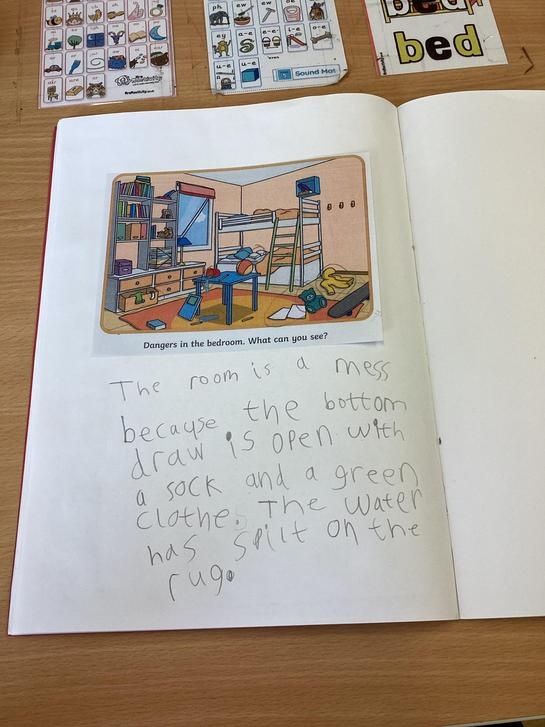 ph
ew
oe
ey
a-e
e-e
i-e
o-e
u-e
u-e
Sound Mat
bed
bed
Dangers in the bedroom. What can you see?
The room is a mess
because the bottom
draw is open with
a sock and a green
clothe. The water
has spilt on the
rug.